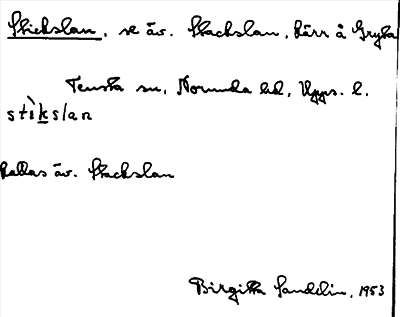 Stickslan, se äv. Stackslan, kärr å Gryta
Tensta sn, Norunda hd, Upps. l.
stìkslan
kallas äv. Stackslan
Birgitta Sandelin, 1953